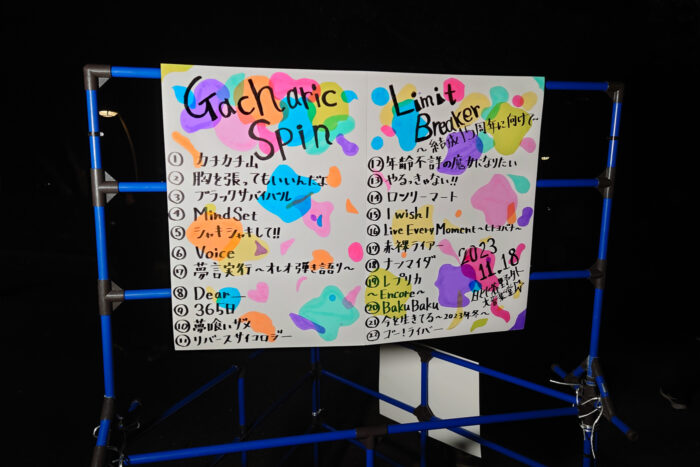 Gacharic
Spin
① カチカチ山
② 胸を張ってもいいんだよ
③ ブラックサバイバル
④ MindSet
⑤ シャキシャキして!!
⑥ Voice
⑦ 夢言実行〜オレオ弾き語り〜
⑧ Dear__
⑨ 365日
⑩ 夢喰いザメ
⑪ リバースサイコロジー
Limit
Breaker
〜結成15周年に向けて〜
⑫ 年齢不詳の魔女になりたい
⑬ やるっきゃない!!
⑭ ロンリーマート
⑮ I wish I
⑯ Live Every Moment〜ヒトヨバナ〜
⑰ 赤裸ライアー
⑱ ナンマイダ
⑲ レプリカ
〜Encore〜
⑳ BakuBaku
㉑ 今を生きてる〜2023年冬〜
㉒ ゴー!ライバー
2023
11.18
日比谷野外
大音楽堂